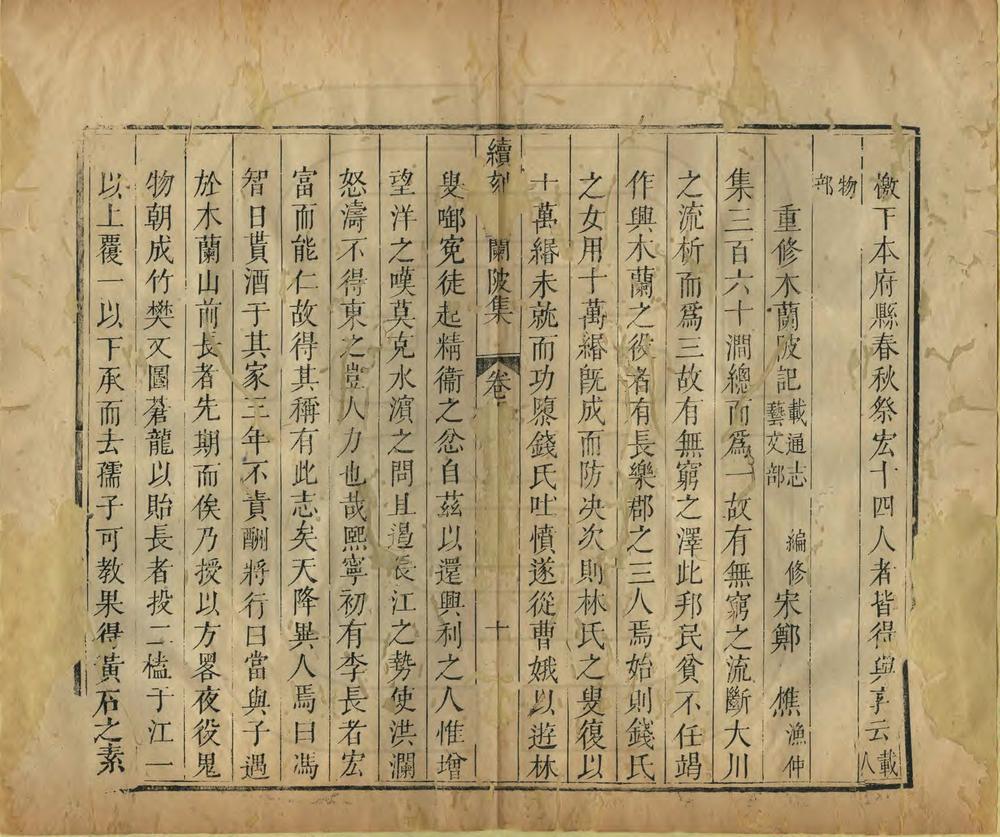 檄下本府縣春秋祭宏十四人者皆得與享云載人
物部
重修木蘭陂記載通志藝文部 編修宋鄭 樵漁仲
集三百六十澗總而爲一故有無窮之流斷大川
之流析而爲三故有無窮之澤此邦民貧不任竭
作興木蘭之役者有長樂郡之三人焉始則錢氏
之女用十萬緡旣成而防决次則林氏之叟復以
十萬緡未就而功隳錢氏吐憤遂從曹娥以遊林
續刻 蘭陂集 卷 十
叟啣寃徒起精衞之忿自茲以還興利之人惟增
望洋之嘆莫克水濵之問且遏長江之勢使洪瀾
怒濤不得東之豈人力也哉熙寧初有李長者宏
富而能仁故得其稱有此志矣天降異人焉曰馮
智日貰酒于其家三年不責酬將行曰當與子遇
於木蘭山前長者先期而俟乃授以方畧夜役鬼
物朝成竹樊又圖蒼龍以貽長者投二榼于江一
以上覆一以下承而去孺子可教果得黃石之素